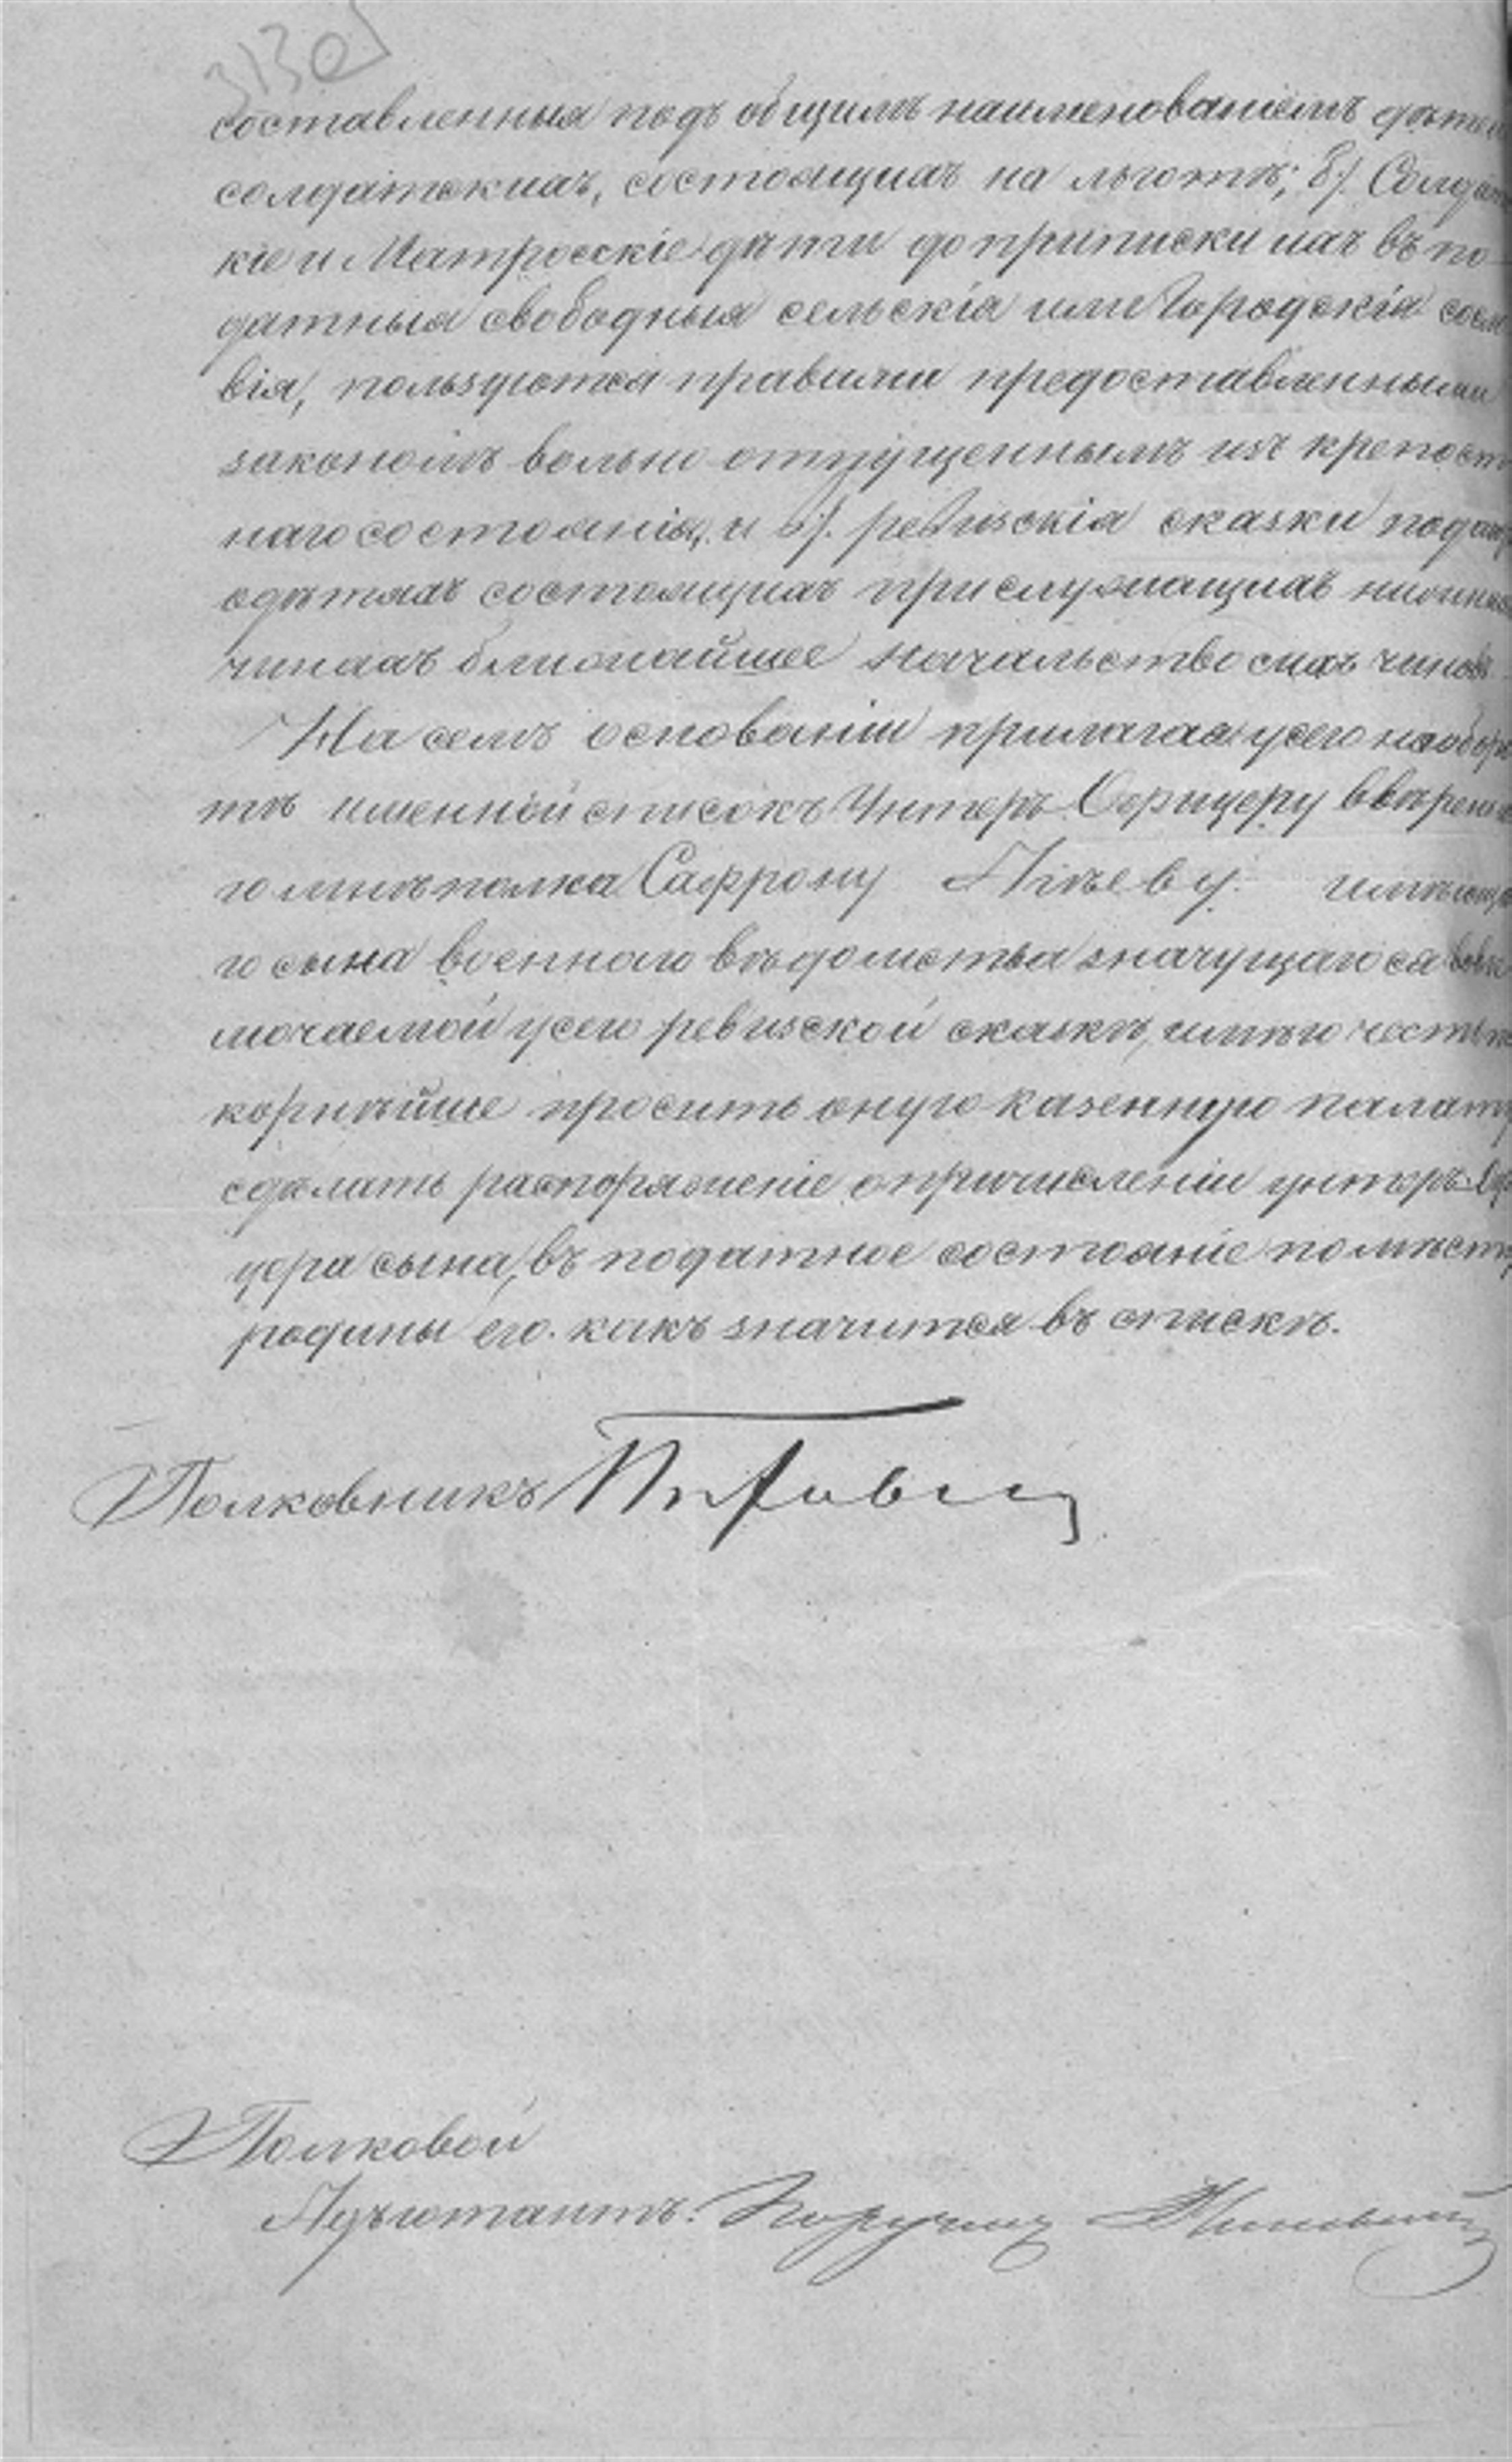 313 об
составленныя подъ общимъ наименованіемъ дѣтей
солдатскихъ, состоящихъ на льготѣ; б). Солдатс
кіе и Матросскіе дѣти до приписки ихъ въ по-
датныя свободныя сельскія или Городскія сосло
вія, пользуются правами предоставленными
закономъ вольно отпущеннымъ изъ крепост
наго состоянія, и в). ревизскія сказки подаютъ
одѣтяхъ состоящихъ прислужащихъ нижнихъ
чинахъ ближайшее начальство сихъ чиновъ.
На семъ основаніи прилагая усего наоборо
тѣ именной списокъ Унтеръ Офицеру ввѣренна
го мнѣ полка Сафрону имѣюща
го сына военнаго вѣдомства значущагося вовк
лючаемой усего ревизской сказкѣ, имѣю честь по
корнѣйше просить оную казенную палату
сдѣлать распоряженіе опричисленіи унтеръ Офи
цера сына, въ податное состояніе помѣсту
родины его. какъ значится въ спискѣ.
Полковникъ
Полковой
Адъютантъ: Поручикъ